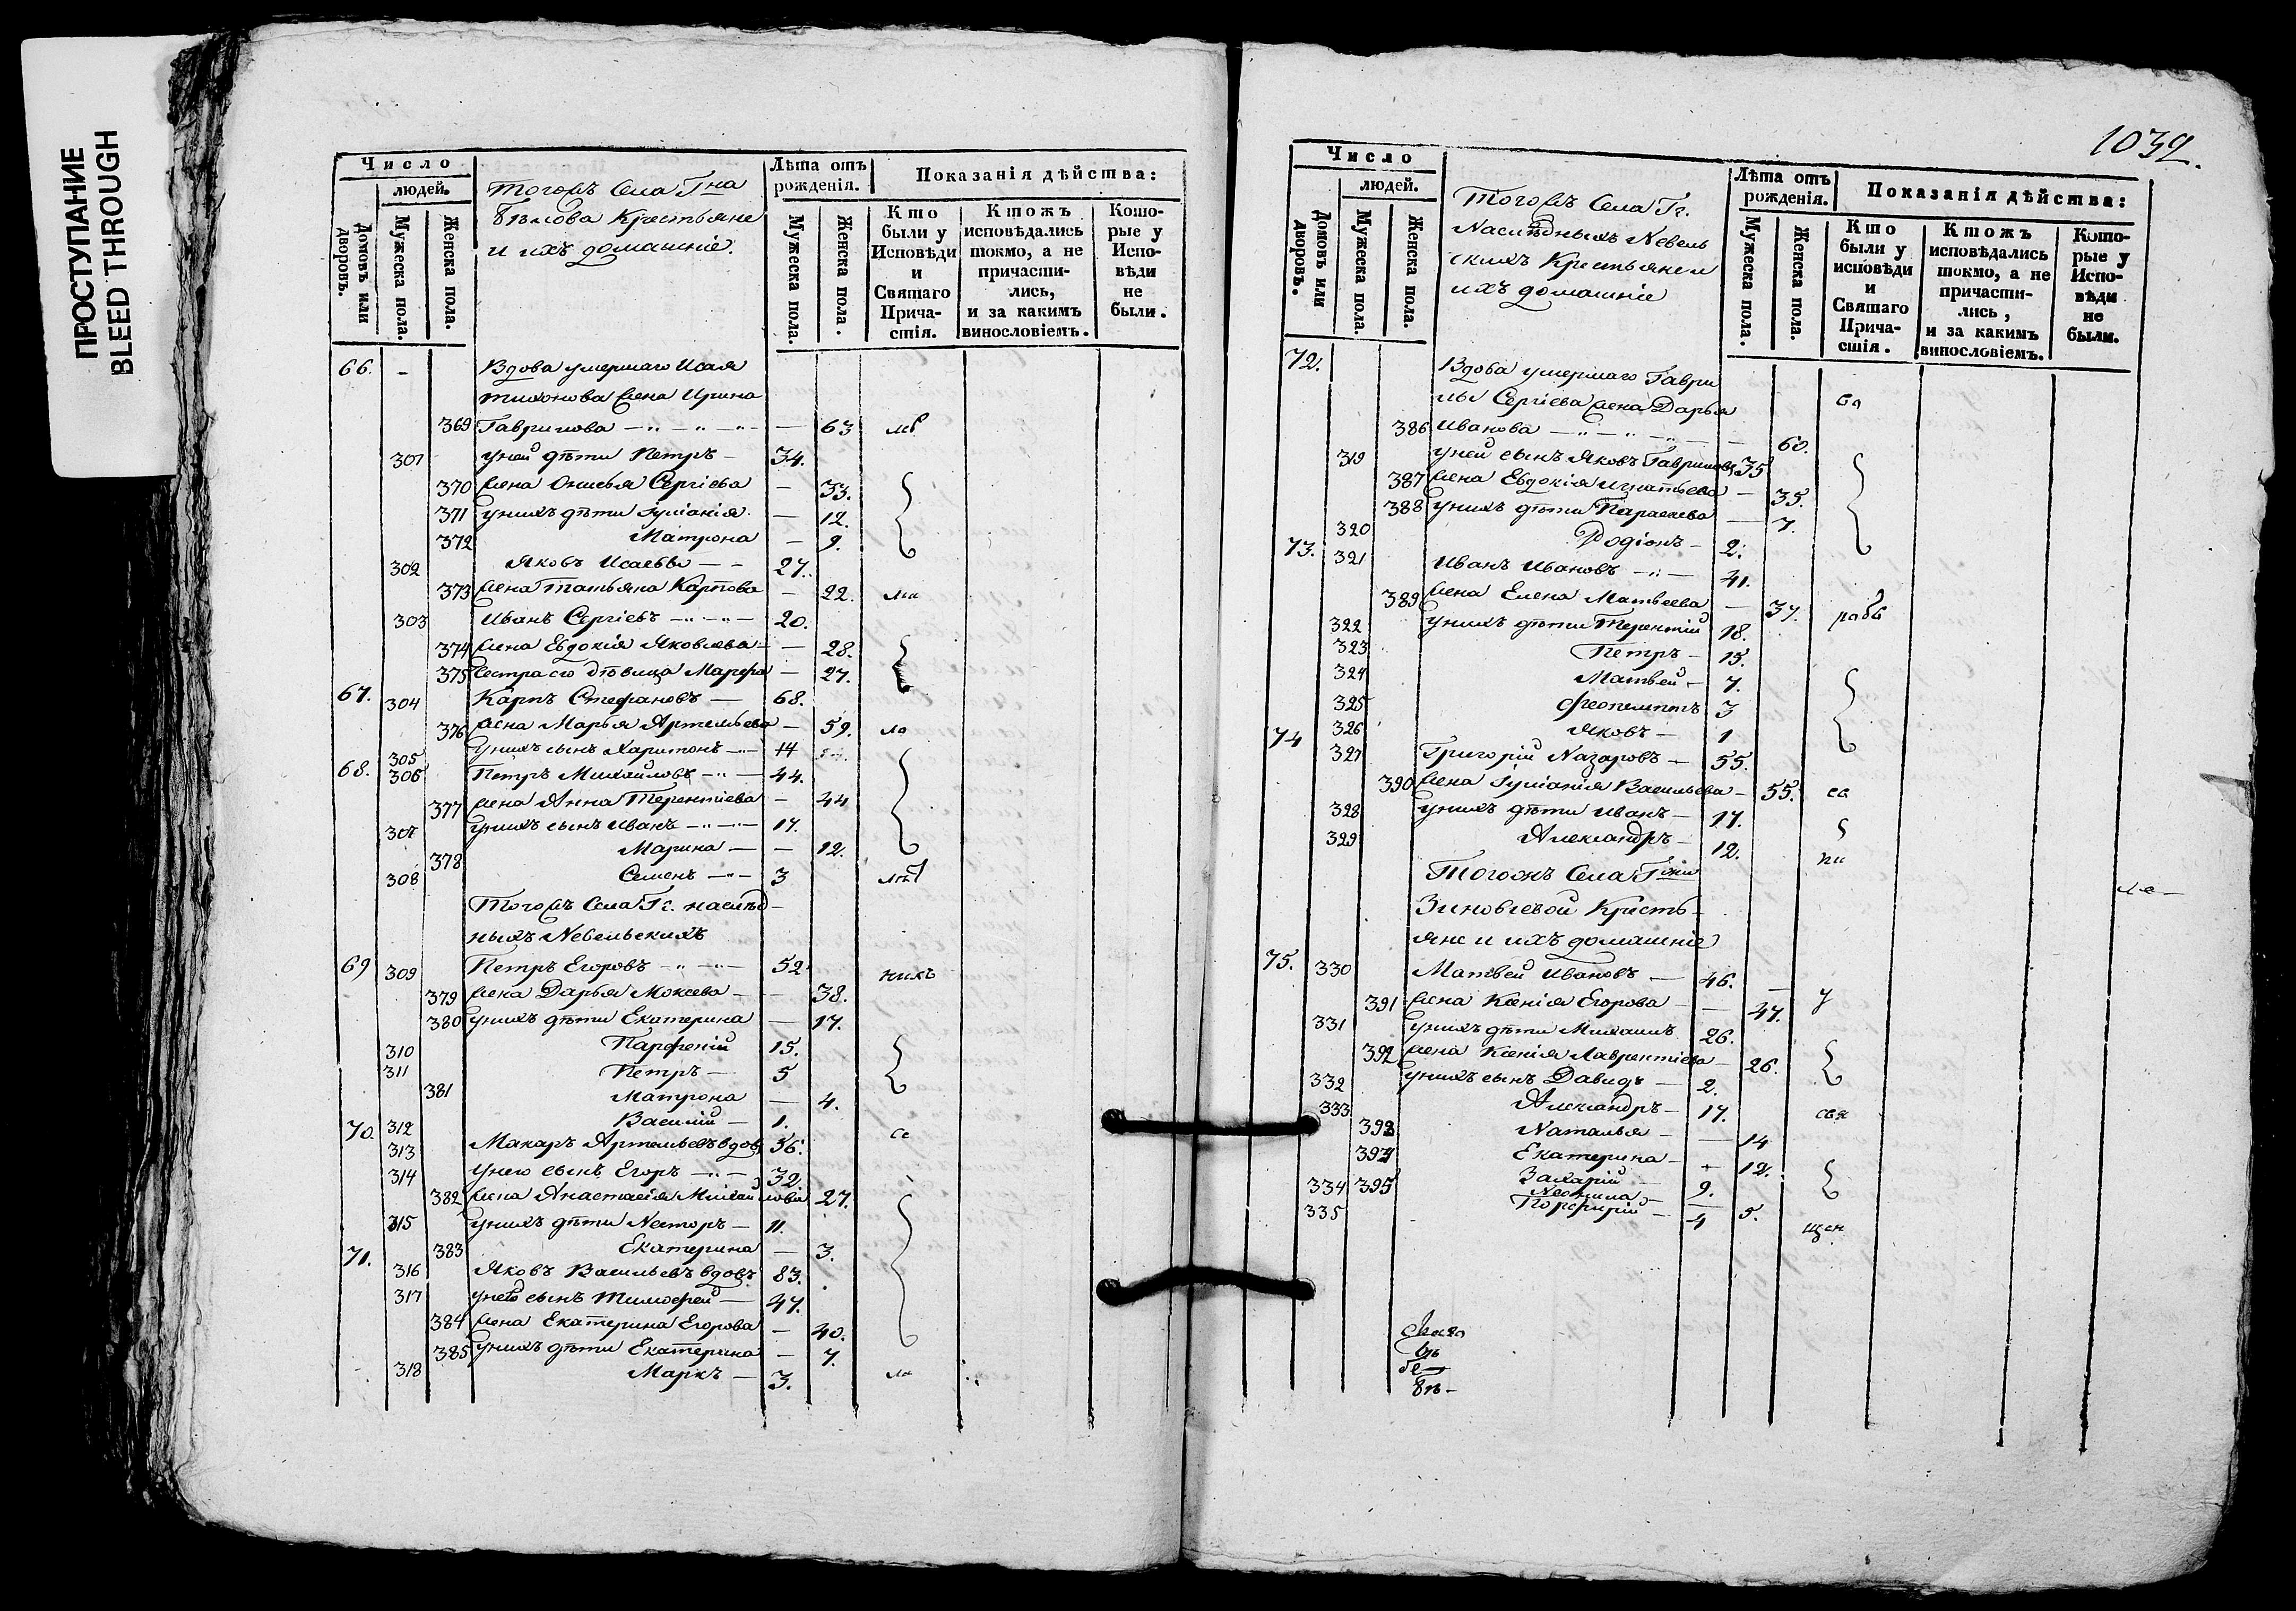 ПРОСТУПАНИЕ
BLEED THROUGH
Число
людей.
Домовъ или дворовъ.
Мужеска пола.
Женска пола.
Тогожъ Села Гна
Бѣлова Крестьяне
и ихъ домашніе.
Лѣта отъ рожденія.
Мужеска пола.
Женска пола.
Показанія дѣйства:
Кто были у Исповѣди и Святаго Причастія.
Ктожъ исповѣдались токмо, а не причастились, и за какимъ винословіемъ.
Которые у Исповѣди не были.
66. Вдова умершаго Исая
Тихонова жена Ирина
369 Гаврилова 63
301 у ней дѣти Петръ 34.
370 жена Онисья Сергіева 33.
371 у нихъ дѣти Іуліанія 12.
372 Матрона 9.
302 Яковъ Исаевъ 27.
373 жена Татьяна Карпова 22.
303 Иванъ Сергіевъ 20.
374 жена Евдокія Яковлева 28.
375 Сестра его дѣвица Марѳа 27.
67. 304 Карпъ Стефановъ 68.
376 жена Марья Артемьева 59.
305 у нихъ сынъ Харитонъ 14
68. 306 Петръ Михайловъ 44.
377 жена Анна Терентіева 44
307 у нихъ сынъ Иванъ 17.
378 Марина 12.
308 Семенъ 3
Тогожъ Села Гг. наслѣд-
ныхъ Невельскихъ
69 309 Петръ Егоровъ 52
379 жена Дарья Мокеева 38.
380 у нихъ дѣти Екатерина 17.
310 Парфеній 15.
311 Петръ 5
381 Матрона 4.
312 Василій 1.
70. 313 Макаръ Артемьевъ вдовъ 56.
314 у него сынъ Егоръ 32
382 жена Анастасія Михайлова 27.
315 у нихъ дѣти Несторъ 11.
383 Екатерина 3.
71. 316 Яковъ Васильевъ вдовъ 83.
317 у него сынъ Тимофей 47.
384 жена Екатерина Егорова 40.
385 у нихъ дѣти Екатерина 7.
318 Маркъ 3.
1032.
Число
людей.
Домовъ или дворовъ.
Мужеска пола.
Женска пола.
Тогожъ Села Гг.
Наслѣдныхъ Невель
скихъ Крестьяне и
ихъ домашніе
Лѣта отъ рожденія.
Мужеска пола.
Женска пола.
Показанія дѣйства:
Кто были у исповѣди и Святаго Причастія.
Ктожъ исповѣдались токмо, а не причастились, и за какимъ винословіемъ.
Которые у Исповѣди не были.
72. Вдова умершаго Гаври
лы Сергіева жена Дарья
386 Иванова 60.
319 у ней сынъ Яковъ Гавриловъ 35
387 жена Евдокія Игнатьева 35.
388 у нихъ дѣти Параскева 7.
320 Родіонъ 2.
73. 321 Иванъ Ивановъ 41.
389 жена Елена Матвеева 37.
322 у нихъ дѣти Терентій 18.
323 Петръ 15.
324 Матвей 7.
325 Феопемптъ 3
326 Яковъ 1
74 327 Григорій Назаровъ 55.
390 жена Іуліанія Васильева 55.
328 у нихъ дѣти Иванъ 17.
329 Александръ 12.
Тогожъ Села Гжи
Зиновьевой Кресть-
яне и ихъ домашніе
75. 330 Матвей Ивановъ 46.
391 жена Ксенія Егорова 47.
331 у нихъ дѣти Михаилъ 26.
392 жена Ксенія Лаврентіева 26.
332 у нихъ сынъ Давидъ 2.
333 Александръ 17.
393 Наталья 14
394 Екатерина 12.
334 Захарій 9.
395 Неонила 5.
335 Порфирій 4